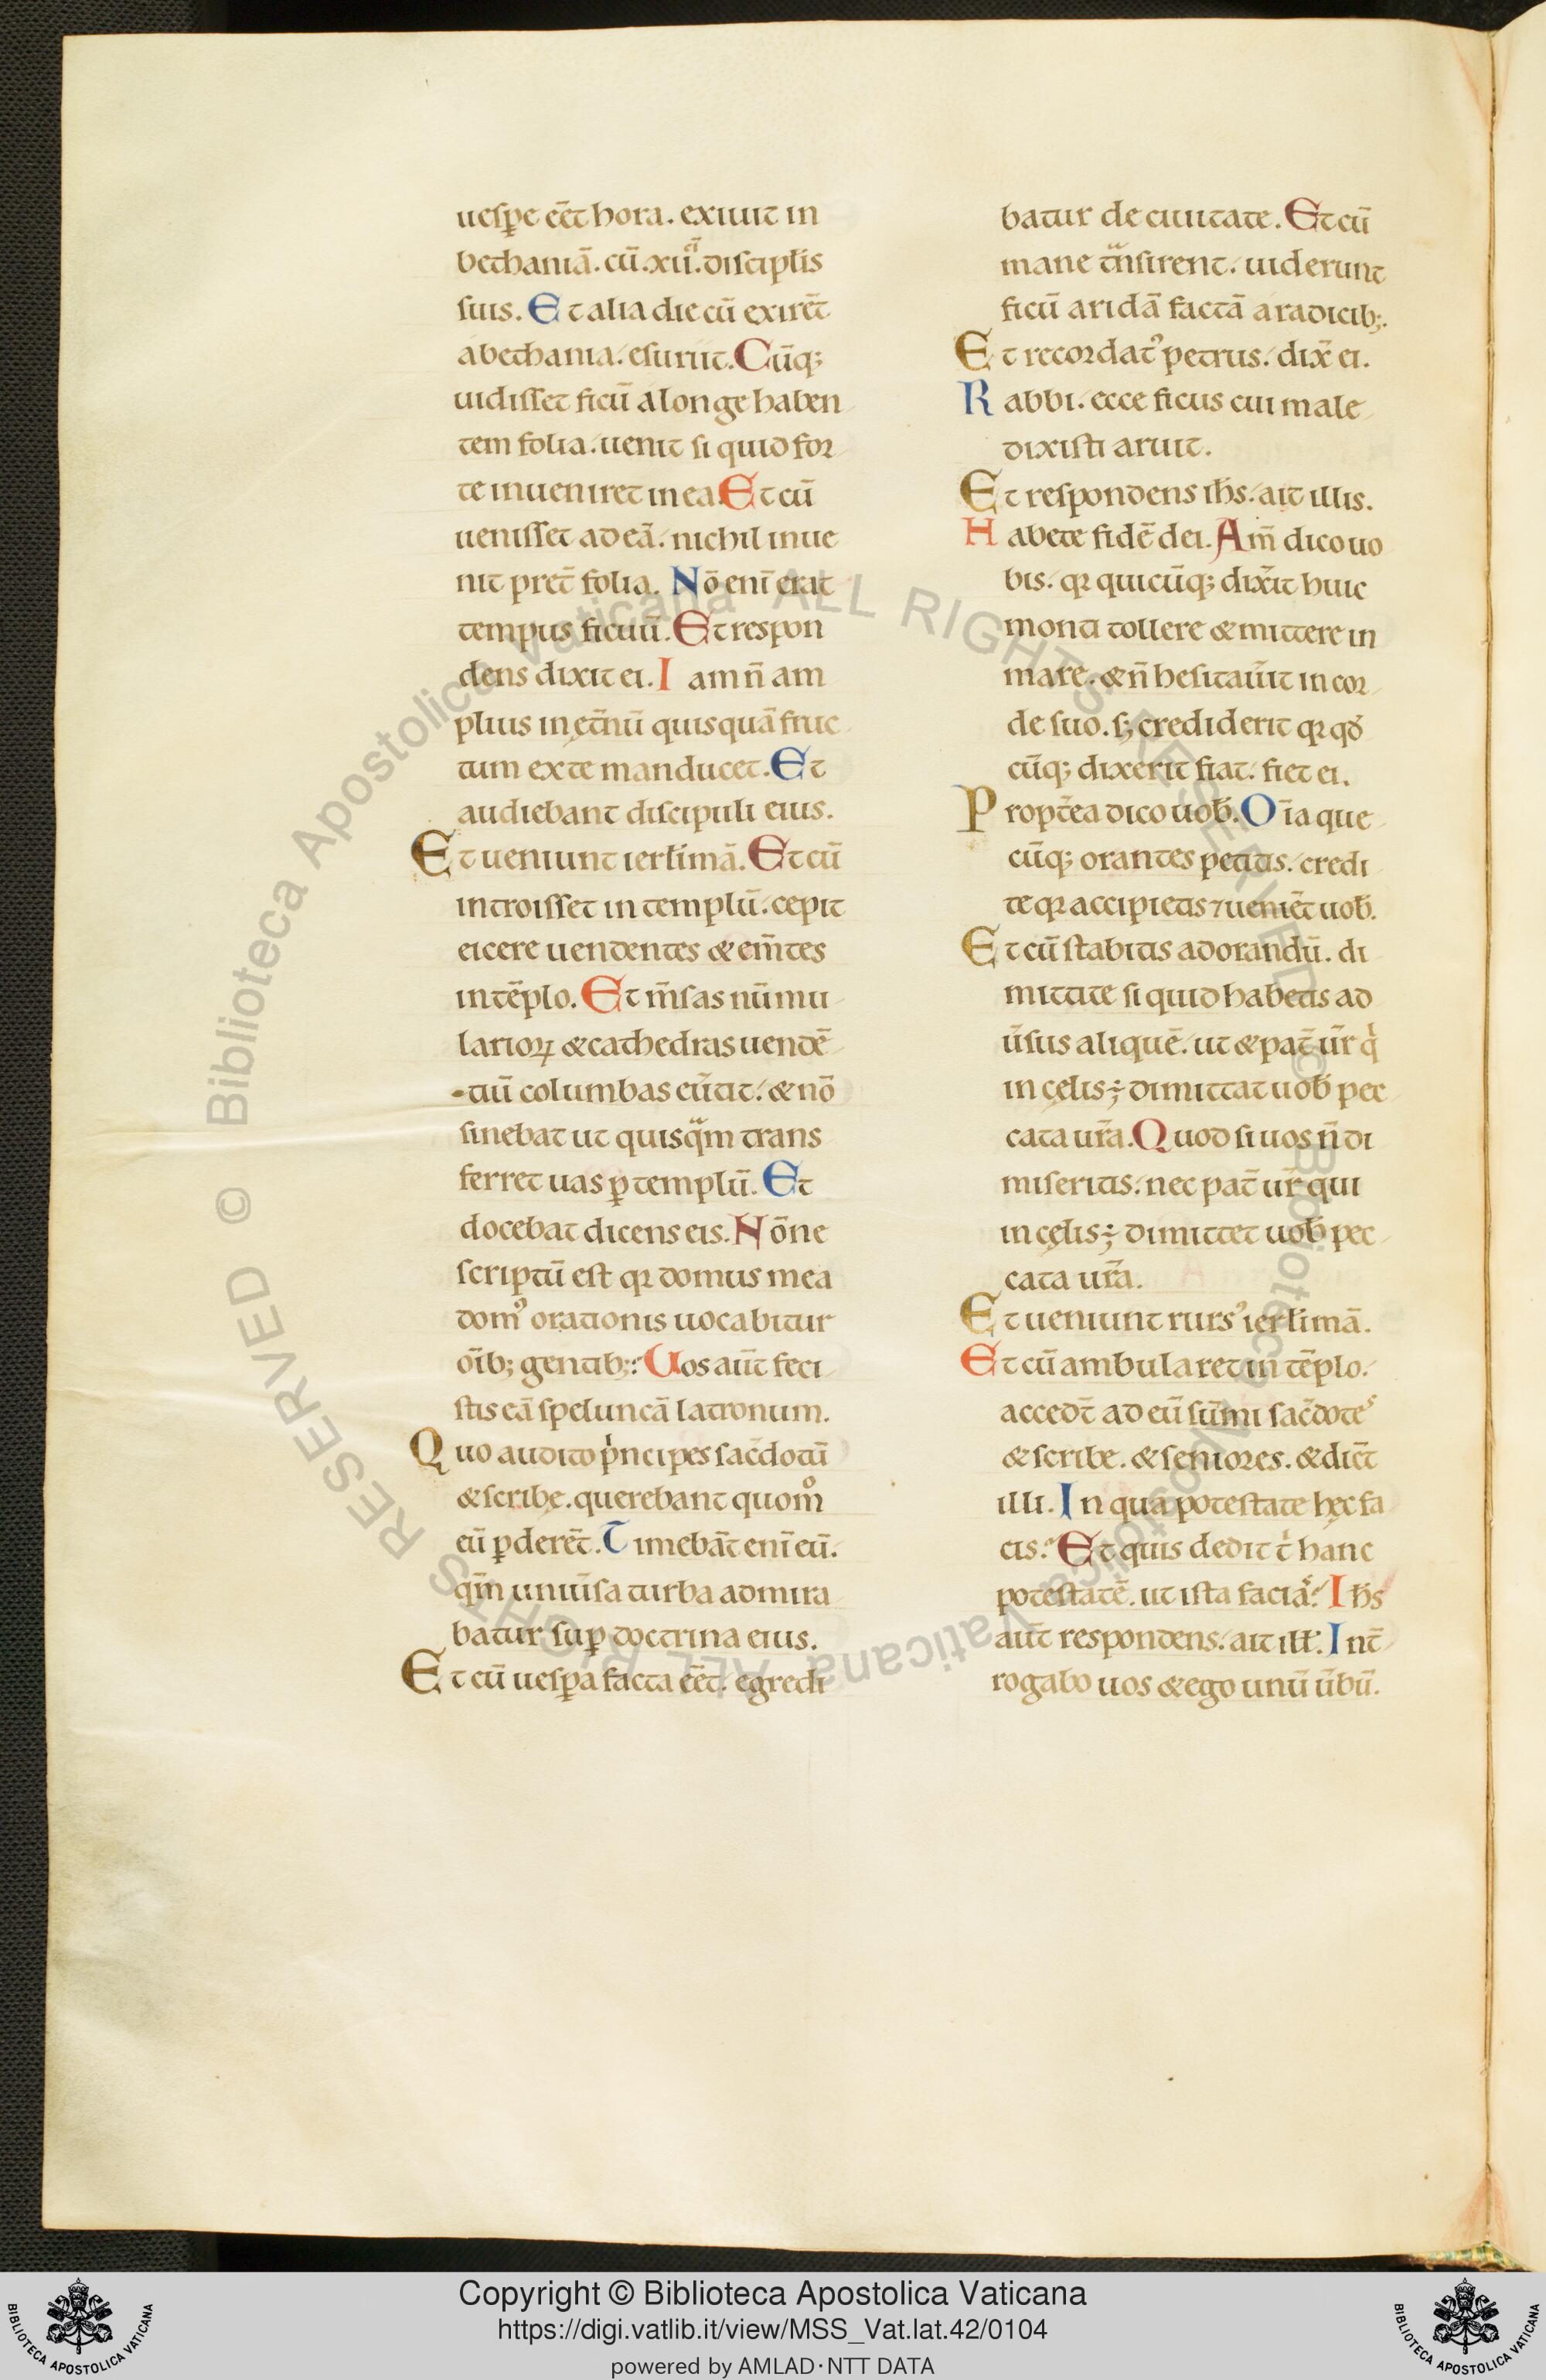 uesꝑe eēt hora. exiuit in
bethaniā. cū. xii. discipłis
suis. Et alia die cū exirēt
a bethania. esuriit. Cūq;
uidisset ficū a longe haben
tem folia. uenit si quid for
te inueniret in ea. Et cū
uenisset ad eā. nichil inue
nit pret̄ folia. Nō eni̅ erat
tempus ficuū. Et respon
dens dixit ei. Iam n̄ am
plius in ęt̄nū quisquā fruc
tum ex te manducet. Et
audiebant discipuli eius.
Et ueniunt ierłimā. Et cū
introisset in templū. cepit
eicere uendentes & em̄tes
in tēplo. Et m̄sas nūmu
larioꝝ & cathedras uendē
tiū columbas eūtit. & nō
sinebat ut quisqᵃm trans
ferret uas ꝑ templū. Et
docebat dicens eis. Nōne
scriptū est qꝛ domus mea
domꝰ orationis uocabitur
oīb; gentib;. Uos aūt feci
stis eā speluncā latronum.
Quo audito pͥncipes sac̄dotū
& scribę. querebant quom̊
eū ꝑderēt. Timebāt eni̅ eū.
qm̄ uniūsa turba admira
batur suꝑ doctrina eius.
Et cū uesꝑa facta eēt. egredi
batur de ciuitate. Et cū
mane tᵃnsirent. uiderunt
ficū aridā factā a radicib;.
Et recordatꝰ petrus. dix̄ ei.
Rabbi. ecce ficus cui male
dixisti aruit.
Et respondens ih̄s. ait illis.
Habete fidē dei. Am̄ dico uo
bis. qꝛ quicūq; dix̄it huic
monti tollere & mittere in
mare. & n̄ hesitaūit in cor
de suo. s; crediderit qꝛ qđ
cūq; dixerit fiat. fiet ei.
Propt̄ea dico uob̄. Oīa que
cūq; orantes petitis. credi
te qꝛ accipietis ⁊ ueniēt uob̄.
Et cū stabitis ad orandū. di
mittite si quid habetis ad
ūsus aliquē. ut & pat̄ ur̄ qͥ
in cęlis ÷ dimittat uob̄ pec
cata ur̄a. Quod si uos n̄ di
miseritis. nec pat̄ ur̄ qui
in cęlis ÷ dimittet uob̄ pec
cata ur̄a.
Et ueniunt rursꝰ ierłimā.
Et cū ambularet in tēplo.
accedt̄ ad eū sūmi sac̄doteˢ
& scribe. & seniores. & dict̄
illi. In qua potestate hęc fa
cis. Et quis dedit tͥ hanc
potestatē. ut ista faciaˢ. Ih̄s
aut̄ respondens. ait ilł. Int̄
rogabo uos & ego unū ūbū.
© Biblioteca Apostolica Vaticana ALL RIGHTS RESERVED © Biblioteca Apostolica Vaticana ALL RIGHTS RESERVED
Copyright © Biblioteca Apostolica Vaticana
https://digi.vatlib.it/view/MSS_Vat.lat.42/0104
powered by AMLAD·NTT DATA
BIBLIOTECA APOSTOLICA VATICANA
BIBLIOTECA APOSTOLICA VATICANA